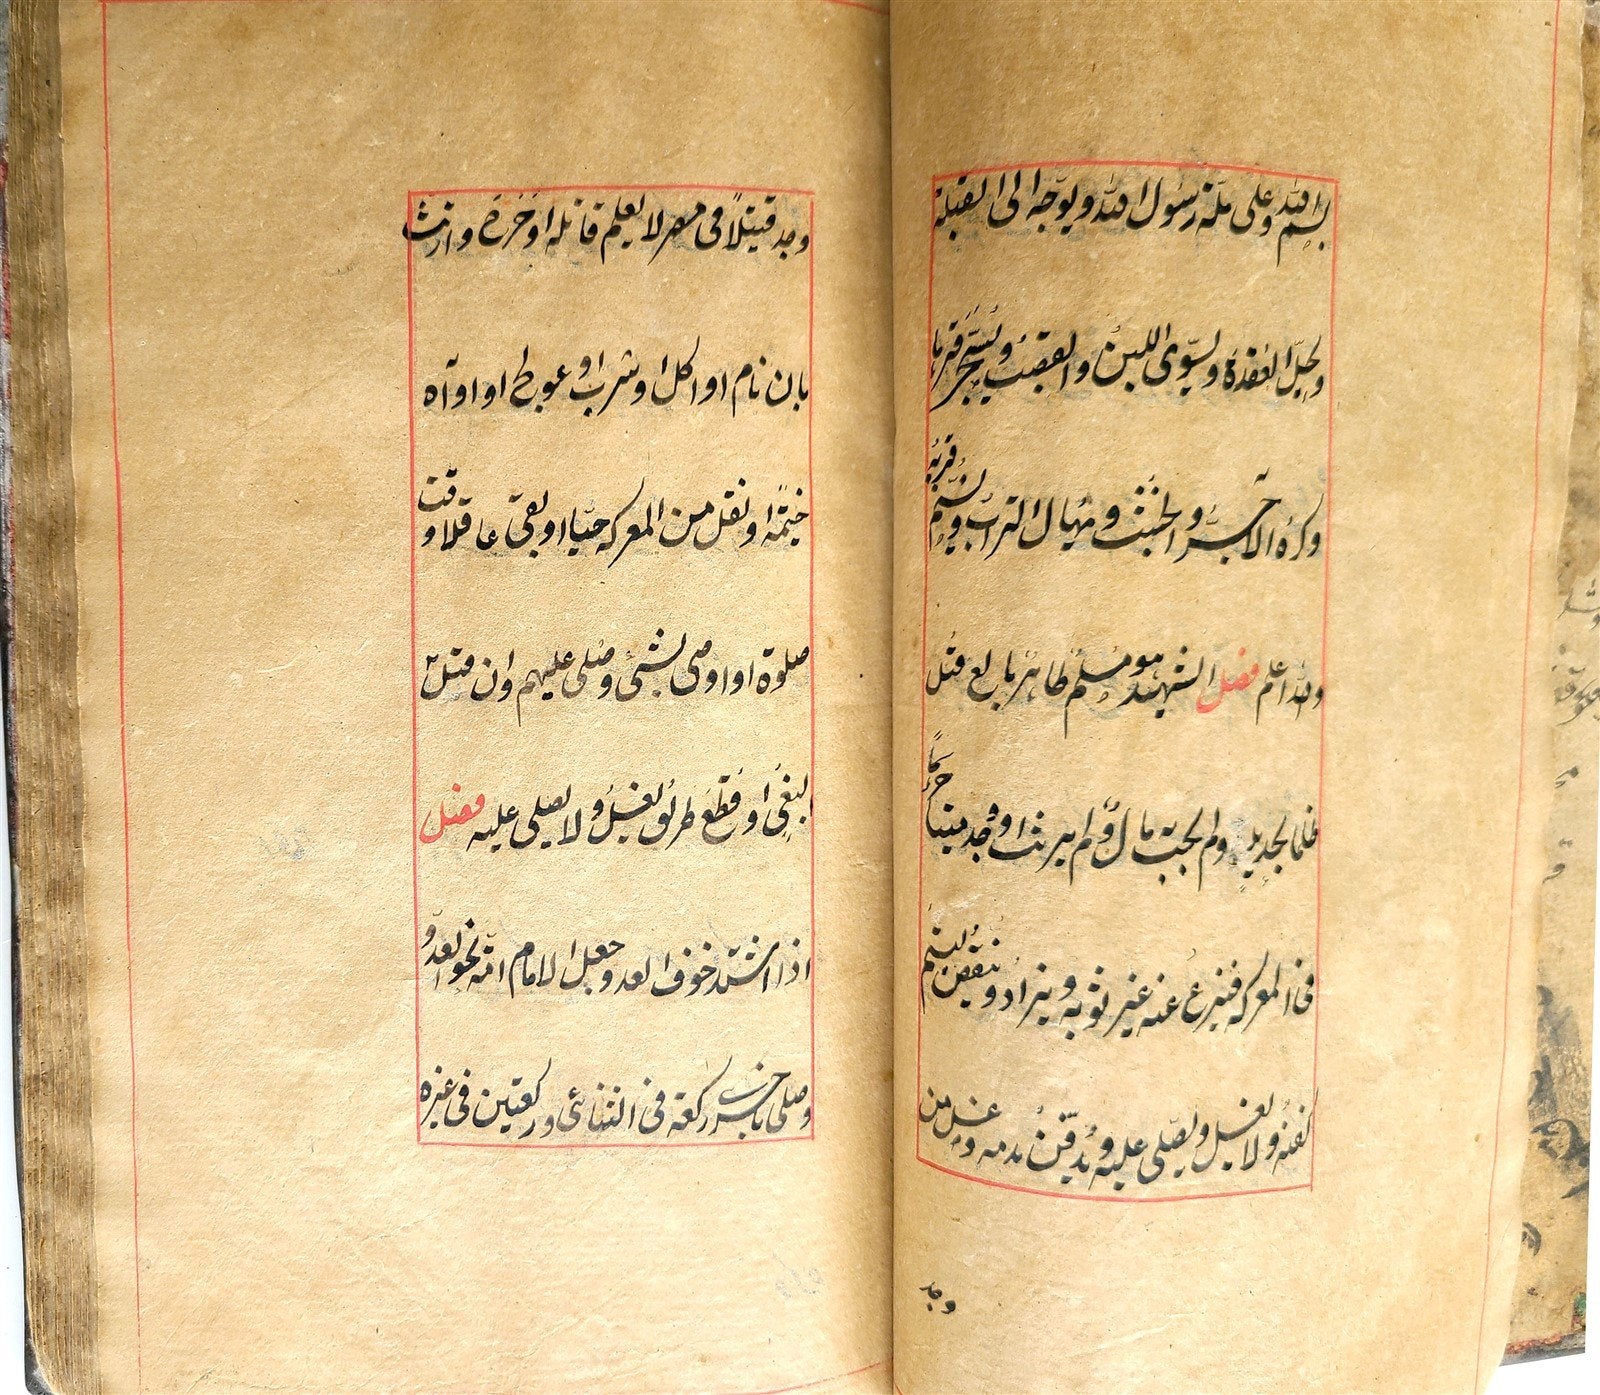 بسم الله وعلى ملة رسول الله ويوجه الى القبلة
ويحل العقدة ويسوى اللبن والقصب ويسجى قبرها
وكره الآجر والخشب ويهال التراب ويسنم قبره
والله اعلم فصل الشهيد هو مسلم طاهر بالغ قتل
ظلما بحديدة ولم يجب مال ولم يرتث او وجد ميتا جريحا
فى المعركة فينزع عنه غير ثوبه ويزاد وينقص ليتم
كفنه ولا يغسل ويصلى عليه ويدفن بدمه وغسل من
وجد
وجد قتيلاً فى مصر لا يعلم قاتله او جرح وارتث
بان نام او اكل او شرب او عولج او اواه
خيمة او نقل من المعركة حيا او بقى عاقلا وقت
صلوة او اوصى بشئ وصلى عليهم وان قتل
لبغى او قطع طريق يغسل ولا يصلى عليه فصل
اذا اشتد خوف العدو جعل الامام امة نحو العدو
وصلى باخرى ركعة فى الثنائى وركعتين فى غيره